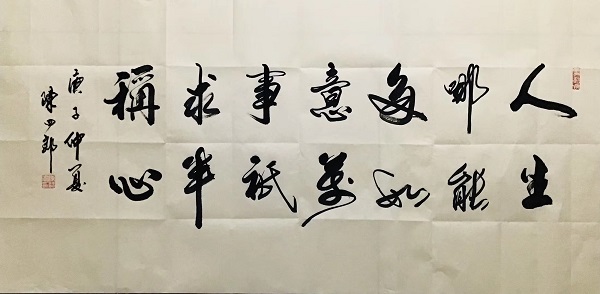 人生
哪能
多如
意萬
事祇
求半
稱心
庚子仲夏
陳四郎